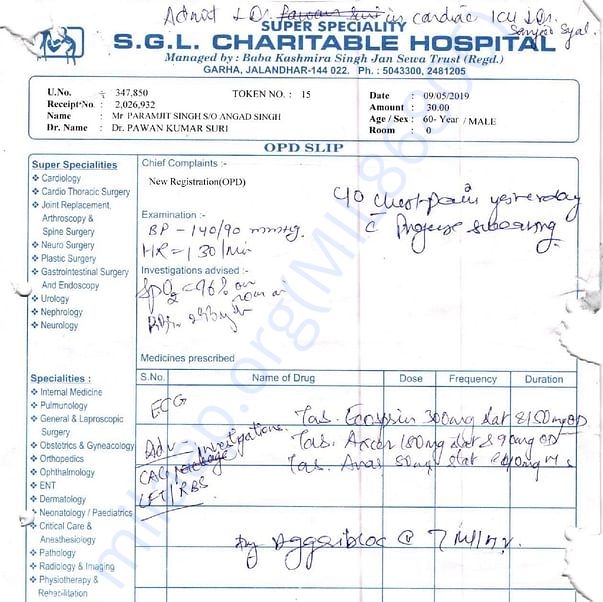 Admit I.D. in cardiac ICU I Dr. Sanjeev Syal.
SUPER SPECIALITY
S.G.L. CHARITABLE HOSPITAL
Managed by : Baba Kashmira Singh Jan Sewa Trust (Regd.)
GARHA, JALANDHAR-144 022. Ph. : 5043300, 2481205
U.No. : 347,850 TOKEN NO. : 15 Date : 09/05/2019
Receipt No. : 2,026,932 Amount : 30.00
Name : Mr PARAMJIT SINGH S/O ANGAD SINGH Age / Sex : 60- Year / MALE
Dr. Name : Dr. PAWAN KUMAR SURI Room : 0
OPD SLIP
Super Specialities
Cardiology
Cardio Thoracic Surgery
Joint Replacement,
Arthroscopy &
Spine Surgery
Neuro Surgery
Plastic Surgery
Gastrointestinal Surgery
And Endoscopy
Urology
Nephrology
Neurology
Chief Complaints :-
New Registration(OPD)
C/O Chest pain yesterday
c Profuse sweating
Examination :-
BP - 140/90 mmHg.
HR = 130/Min
Investigations advised :-
SpO2 = 96% on
room air
Medicines prescribed
S.No. Name of Drug Dose Frequency Duration
ECG
Tab. Ecosprin 300mg stat & 150mg OD
Adv Investigations. Tab. Axcer 180mg stat & 90mg OD
CAG Package Tab. 80mg stat & 40mg HS
LFT / RBS
Aggribloc @ 7 Ml/hr.
Specialities :
Internal Medicine
Pulmunology
General & Laproscopic
Surgery
Obstetrics & Gyneacology
Orthopedics
Ophthalmology
ENT
Dermatology
Neonatology / Paediatrics
Critical Care &
Anesthesiology
Pathology
Radiology & Imaging
Physiotherapy &
Rehabilitation
milaap.org(MII